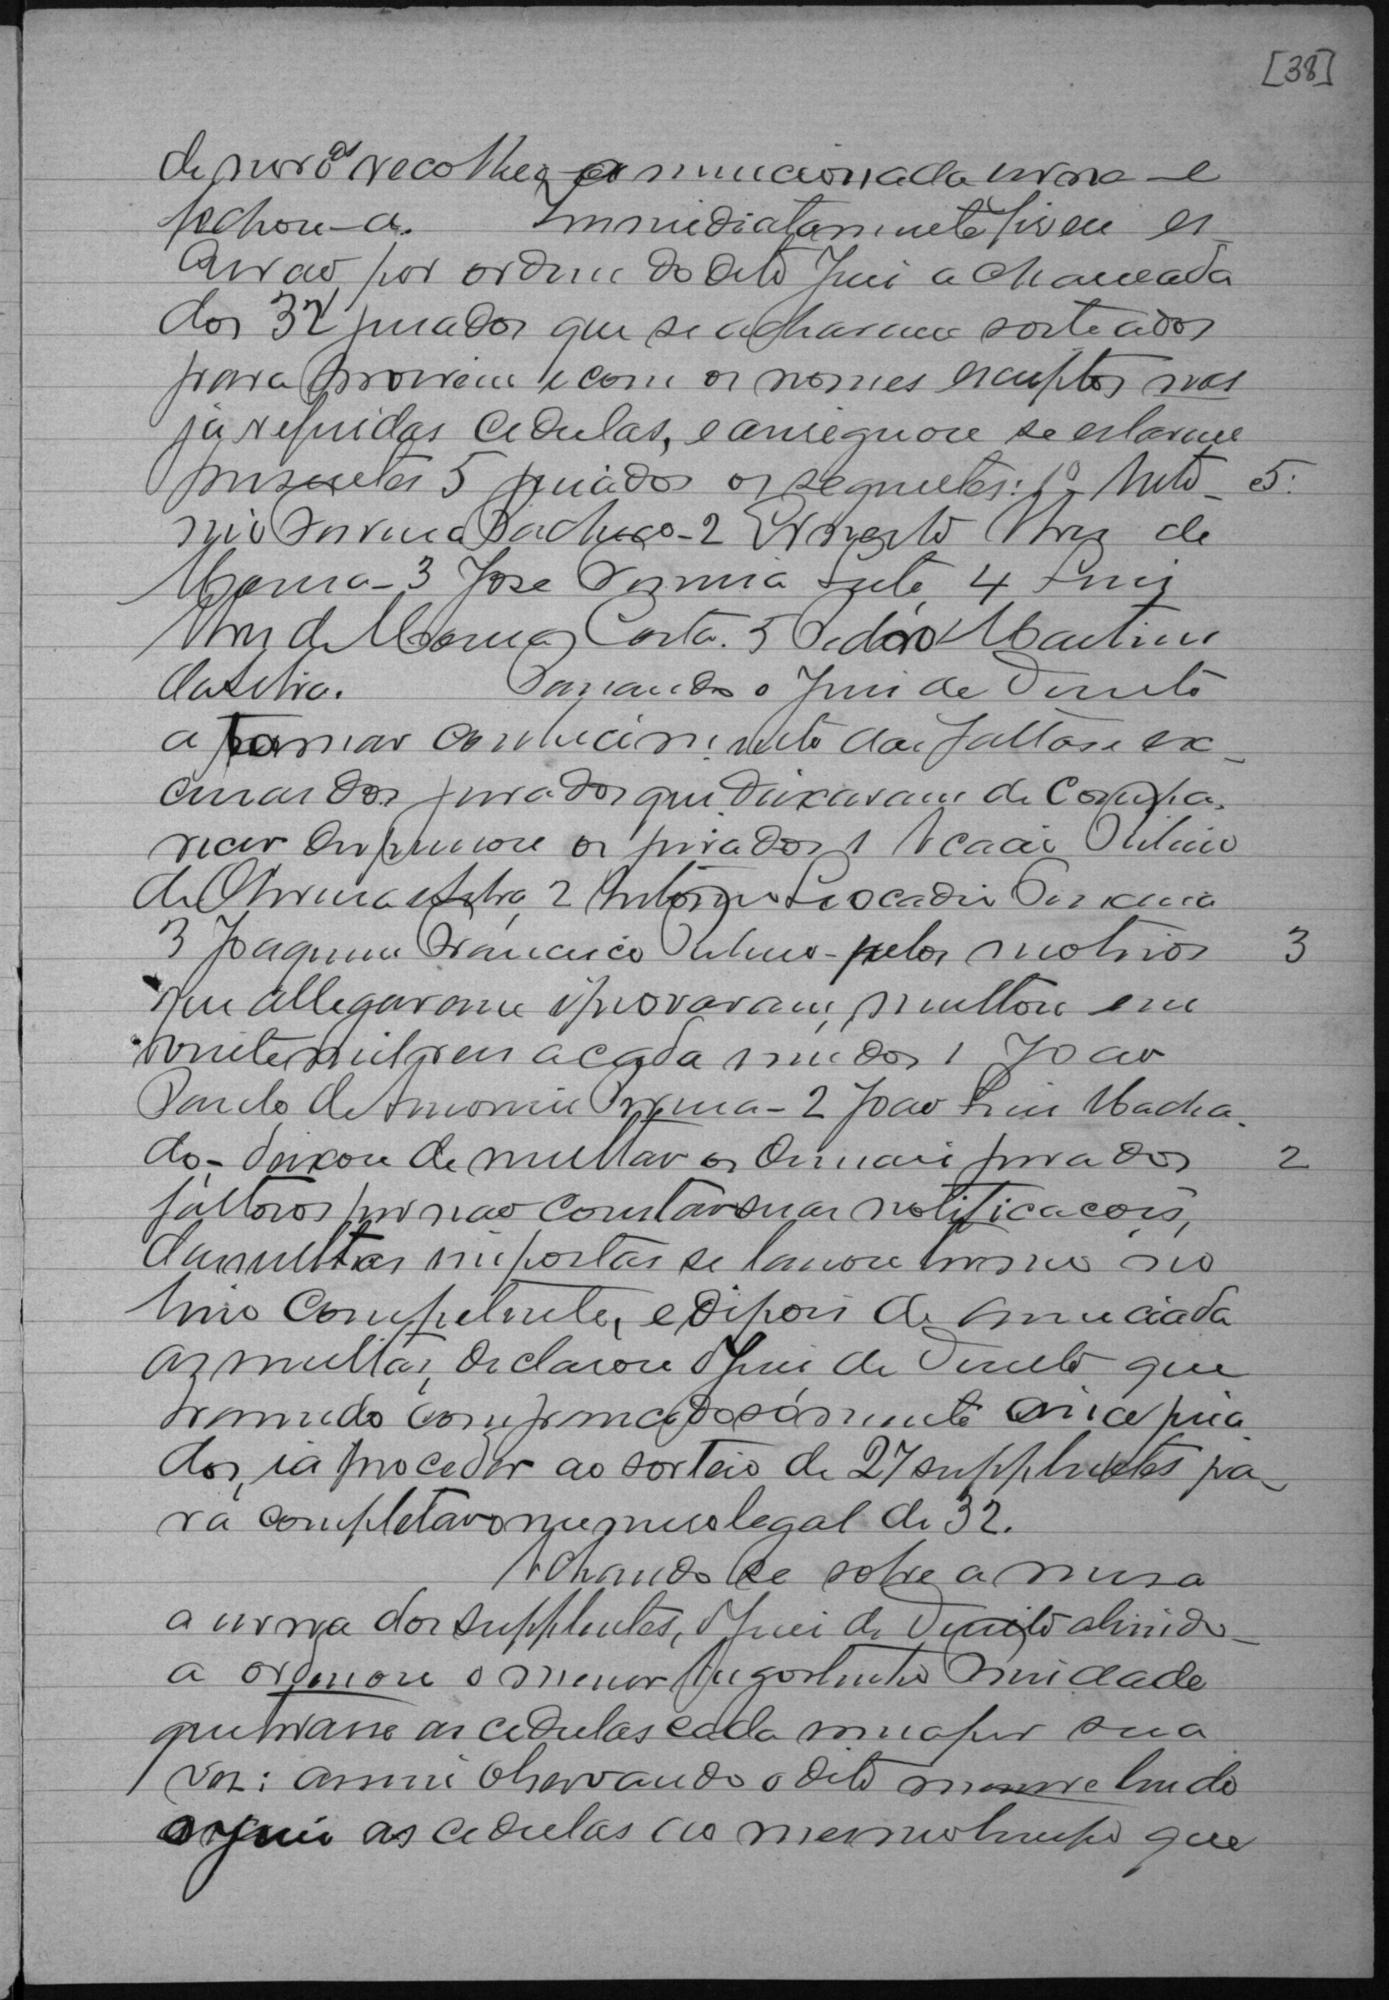 [38]
de novo as recolheu a mencionada urna e
fechou-a. Immediatamente fiz eu es-
crivão, por ordem do dito Juiz a chamada
dos 32 jurados que se acharam sorteados
para servirem e com os nomes escriptos nas
já referidas cedulas, e se estarem
presentes 5 jurados os seguintes: 1º Anto- 5:
nio Pacheco - 2 Ernesto Alves de
Moura - 3 José Leite 4 Luiz
Alves de Moura Costa. 5 Pedro Martins
da Silva. Passando o Juiz de Direito
a tomar conhecimento das faltas e ex-
cusas dos jurados que deixaram de compa-
recer dispensou os jurados 1 Acacio
de Oliveira e Silva, 2 Antonio Leocadio
3 Joaquim Francisco - pelos motivos 3
que allegaram e provaram, multou em
vinte mil reis a cada um dos 1 João
Paulo de - 2 João Luiz Macha-
do - deixou de multar os demais jurados 2
faltosos por não constar suas notificacões,
das multas impostas se lavrou termo no
livro competente, e depois de annunciada
as multas, declarou o Juiz de Direito que
tendo comparecido sómente cinco jura-
dos, ia proceder ao sorteio de 27 supplentes pa-
ra completar o numero legal de 32.
Achando se sobre a mesa
a urna dos supplentes, o Juiz de Direito abrindo-
a ordenou o menor Agostinho Trindade
que tirasse as cedulas cada uma por sua
vez: assim observando o dito menor e lendo
o Juiz as cedulas ao mesmo tempo que